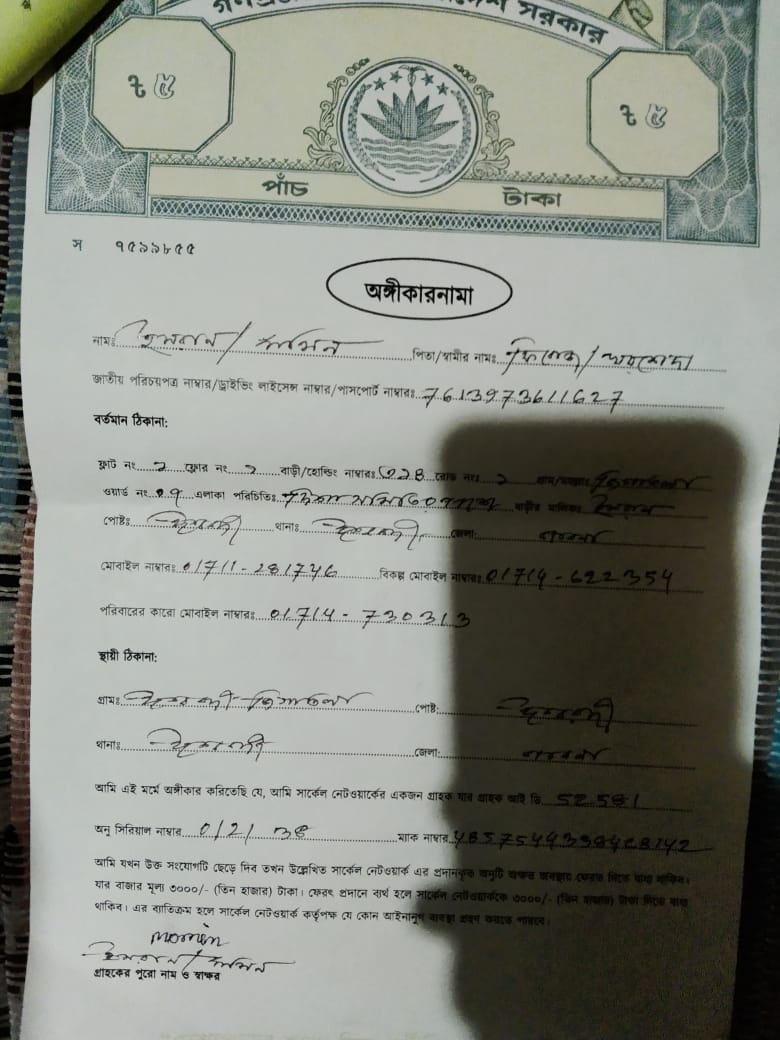 সরকার
৳ ৫
৳ ৫
পাঁচ টাকা
স ৭৫৯৯৮৫৫
অঙ্গীকারনামা
নামঃ ইমরান / মমিন পিতা/স্বামীর নামঃ
জাতীয় পরিচয়পত্র নাম্বার/ড্রাইভিং লাইসেন্স নাম্বার/পাসপোর্ট নাম্বারঃ 7613973611627
বর্তমান ঠিকানা:
ফ্লাট নং ২ ফ্লোর নং ২ বাড়ী/হোল্ডিং নাম্বারঃ রোড নংঃ ২ গ্রাম/মহল্লাঃ
ওয়ার্ড নং ০৭ এলাকা পরিচিতিঃ বাড়ীর মালিকঃ ইমরান
পোষ্টঃ ঈশ্বরদী থানাঃ ঈশ্বরদী জেলা: পাবনা
মোবাইল নাম্বারঃ 01711-281746 বিকল্প মোবাইল নাম্বারঃ 01714-622354
পরিবারের কারো মোবাইল নাম্বারঃ 01714-730313
স্থায়ী ঠিকানা:
গ্রামঃ ঈশ্বরদী পোষ্ট: ঈশ্বরদী
থানাঃ ঈশ্বরদী জেলা: পাবনা
আমি এই মর্মে অঙ্গীকার করিতেছি যে, আমি সার্কেল নেটওয়ার্কের একজন গ্রাহক যার গ্রাহক আই ডি 52581
অনু সিরিয়াল নাম্বার 0/2/ ম্যাক নাম্বার
আমি যখন উক্ত সংযোগটি ছেড়ে দিব তখন উল্লেখিত সার্কেল নেটওয়ার্ক এর প্রদানকৃত অনুটি অক্ষত অবস্থায় ফেরত দিতে বাধ্য থাকিব।
যার বাজার মূল্য ৩০০০/- (তিন হাজার) টাকা। ফেরৎ প্রদানে ব্যর্থ হলে সার্কেল নেটওয়ার্ককে ৩০০০/- (তিন হাজার) টাকা দিতে বাধ্য
থাকিব। এর ব্যতিক্রম হলে সার্কেল নেটওয়ার্ক কর্তৃপক্ষ যে কোন আইনানুগ ব্যবস্থা গ্রহণ করতে পারবে।
momin
ইমরান / মমিন
গ্রাহকের পুরো নাম ও স্বাক্ষর